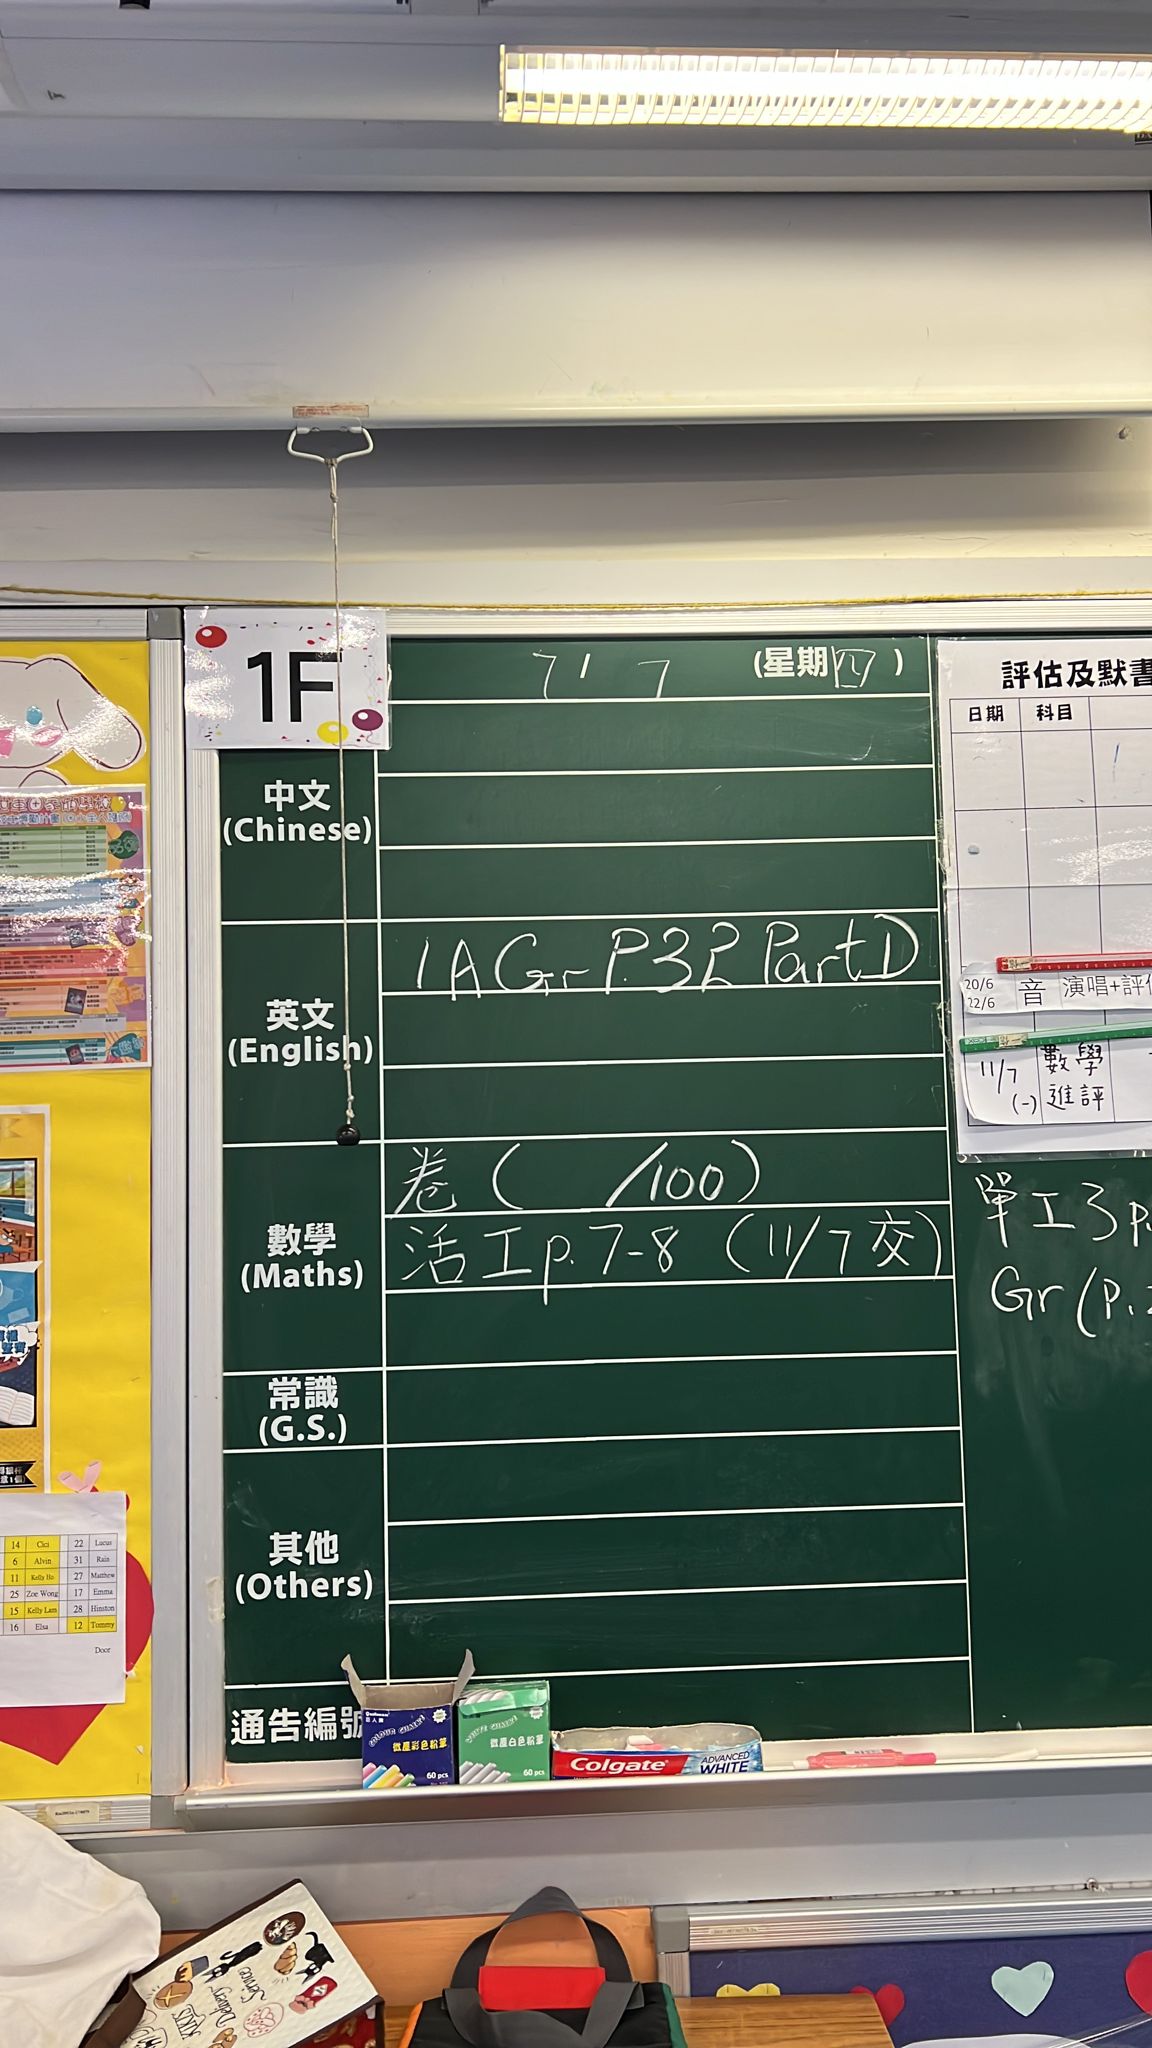 1F
7/7 (星期四)
中文
(Chinese)
英文
(English)
1A Gr P.32 Part D
數學
(Maths)
卷 ( /100)
活工 p. 7-8 (11/7 交)
常識
(G.S.)
其他
(Others)
通告編號
評估及默書
日期 科目
20/6
22/6
音 演唱+評估
11/7
(一)
數學
進評
單工3 p.
Gr (P.
14 Cici 22 Lucus
6 Alvin 31 Rain
11 Kelly Ho 27 Matthew
25 Zoe Wong 17 Emma
15 Kelly Lam 28 Hinston
16 Elsa 12 Tommy
Door
COLOUR CHALKS
微塵彩色粉筆
60 pcs
WHITE CHALKS
微塵白色粉筆
60 pcs
Colgate
ADVANCED
WHITE
Delivery
Service
KIKI'S